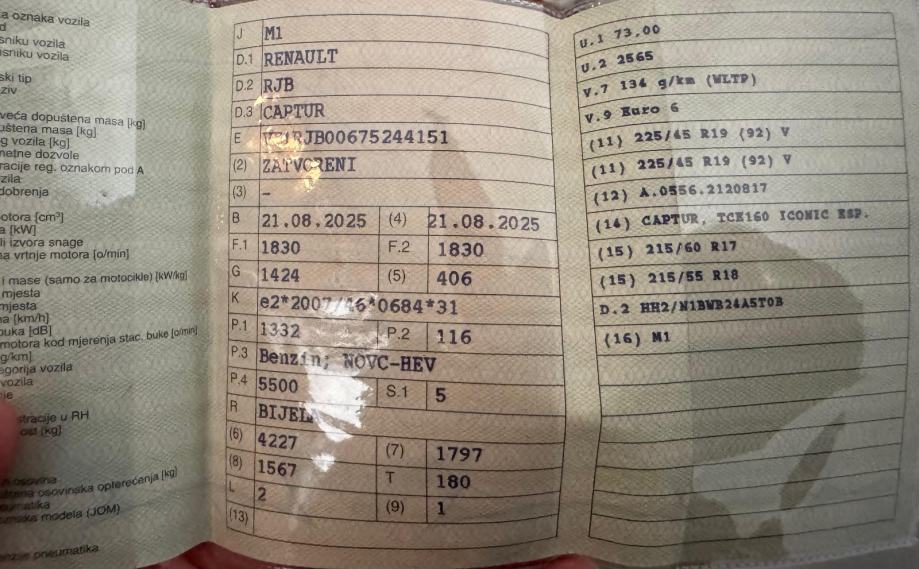 a oznaka vozila
d
sniku vozila
isniku vozila
ski tip
ziv
veća dopuštena masa [kg]
uštena masa [kg]
g vozila [kg]
metne dozvole
racije reg. oznakom pod A
zila
dobrenja
otora [cm³]
a [kW]
li izvora snage
na vrtnje motora [o/min]
i mase (samo za motocikle) [kW/kg]
mjesta
mjesta
na [km/h]
buka [dB]
motora kod mjerenja stac. buke [o/min]
g/km]
egorija vozila
vozila
ie
stracije u RH
ost [kg]
osovina
osovinska opterećenja [kg]
eumatika
modela (JOM)
pneumatika
J M1
D.1 RENAULT
D.2 RJB
D.3 CAPTUR
E RJB00675244151
(2) ZATVORENI
(3) –
B 21.08.2025 (4) 21.08.2025
F.1 1830 F.2 1830
G 1424 (5) 406
K e2*2007/46*0684*31
P.1 1332 P.2 116
P.3 Benzin; NOVC-HEV
P.4 5500 S.1 5
R BIJELA
(6) 4227 (7) 1797
(8) 1567 T 180
L 2 (9) 1
(13)
U.1 73,00
U.2 2565
V.7 134 g/km (WLTP)
V.9 Euro 6
(11) 225/45 R19 (92) V
(11) 225/45 R19 (92) V
(12) A.0556.2120817
(14) CAPTUR, TCE160 ICONIC ESP.
(15) 215/60 R17
(15) 215/55 R18
D.2 HH2/N1BWB24A5T0B
(16) M1